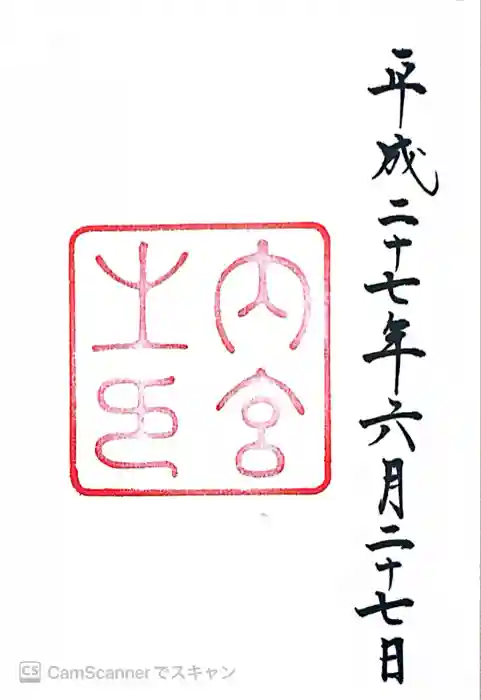 平成二十七年六月二十七日
内宮
之印
CS CamScannerでスキャン